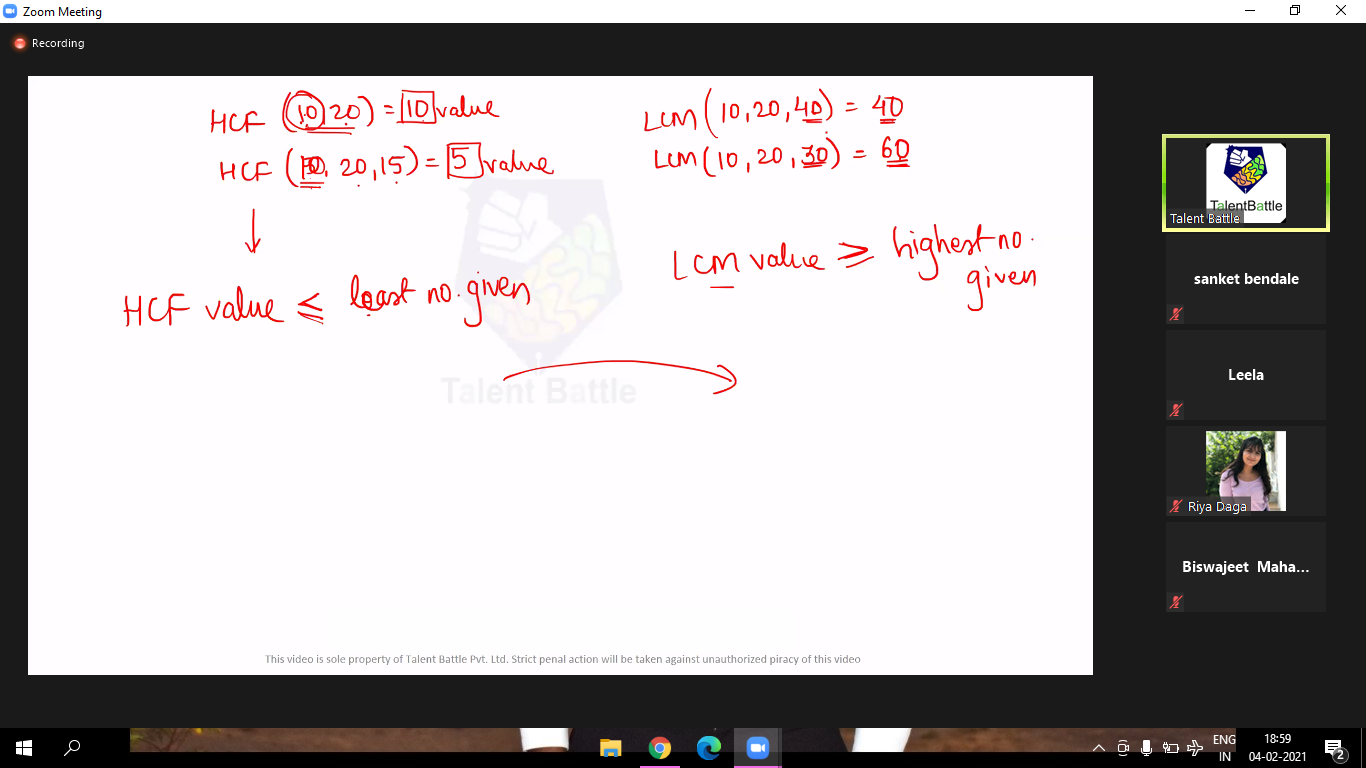 Zoom Meeting
Recording
HCF (10, 20) = 10 value
HCF (10, 20, 15) = 5 value
HCF value ≤ least no. given
LCM (10, 20, 40) = 40
LCM (10, 20, 30) = 60
LCM value ≥ highest no.
given
Talent Battle
This video is sole property of Talent Battle Pvt. Ltd. Strict penal action will be taken against unauthorized piracy of this video
TalentBattle
Talent Battle
sanket bendale
Leela
Riya Daga
Biswajeet Maha...
ENG
IN
18:59
04-02-2021
2